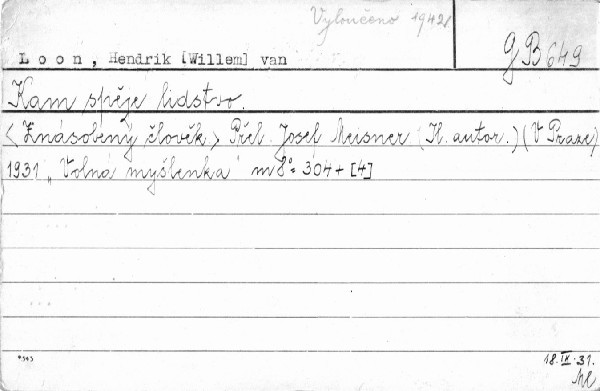 Vyloučeno 1942
g B 649
Loon, Hendrik [Willem] van
Kam spěje lidstvo.
< Znásobený člověk > Přel. Josef Meisner (Il. autor.) (V Praze)
1931 „Volná myšlenka" m 8° = 304 + [4]
18.IX.31.